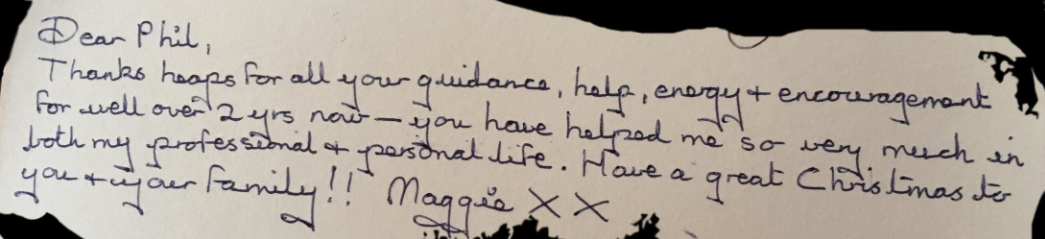 Dear Phil,
Thanks heaps for all your guidance, help, energy + encouragement
for well over 2 yrs now – you have helped me so very much in
both my professional + personal life. Have a great Christmas to
you + your family!! Maggie X X